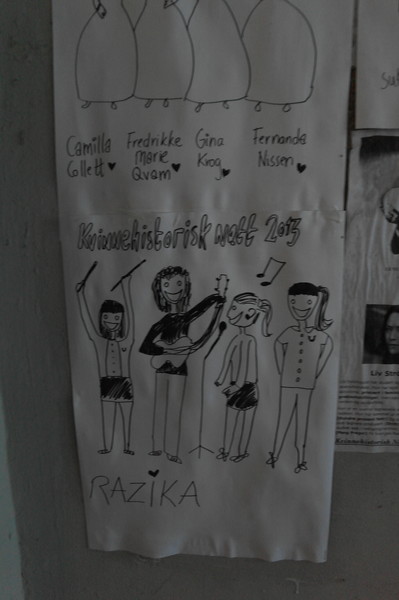 Camilla
Collett
Fredrikke
Marie
Qvam
Gina
Krog
Fernanda
Nissen
Kvinnehistorisk Natt 2013
RAZIKA
Liv Stre